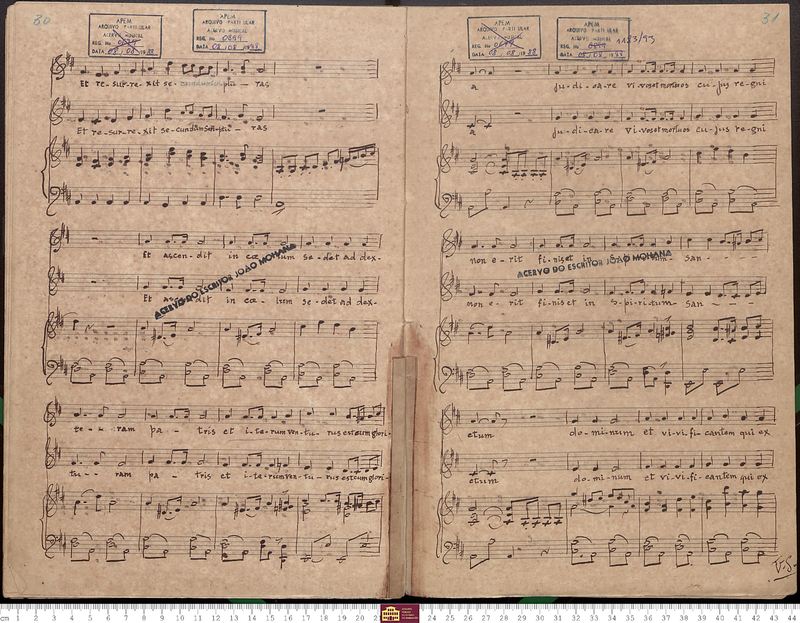 30
APEM
ARQUIVO PARTICULAR
ACERVO MUSICAL
REG. No
DATA 08, 08, 1988
APEM
ARQUIVO PARTICULAR
ACERVO MUSICAL
REG. No 0844
DATA 08, 08, 1988
Et re-sur-re-xit se- ptu-ras
Et re-sur-re-xit se-cundum ras
Et ascen-dit in cœ-lum se-det ad dex-
Et as dit in cœ-lum se-det ad dex-
ACERVO DO ESCRITOR JOÃO MOHANA
ram pa-tris et i-te-rum ven-tu-rus est cum glori-
tu-ram pa-tris et i-te-rum ven-tu-rus est cum glori-
31
APEM
ARQUIVO PARTICULAR
ACERVO MUSICAL
REG. No
DATA 08, 08, 1988
APEM
ARQUIVO PARTICULAR
ACERVO MUSICAL
REG. No
DATA 08, 08, 1988
1183/93
a ju-di-ca-re vi-vos et mortuos cu-jus regni
a ju-di-ca-re vi-vos et mortuos cu-jus re-gni
non e-rit fi-nis et in san-
ACERVO DO ESCRITOR JOÃO MOHANA
non e-rit fi-nis et in s-pi-ri-tum san-
ctum do-mi-num et vi-vi-fi-cantem qui ex
ctum do-mi-num et vi-vi-fi-cantem qui ex
V.S.
cm 1 2 3 4 5 6 7 8 9 10 11 12 13 14 15 16 17 18 19 20 2 24 25 26 27 28 29 30 31 32 33 34 35 36 37 38 39 40 41 42 43 44